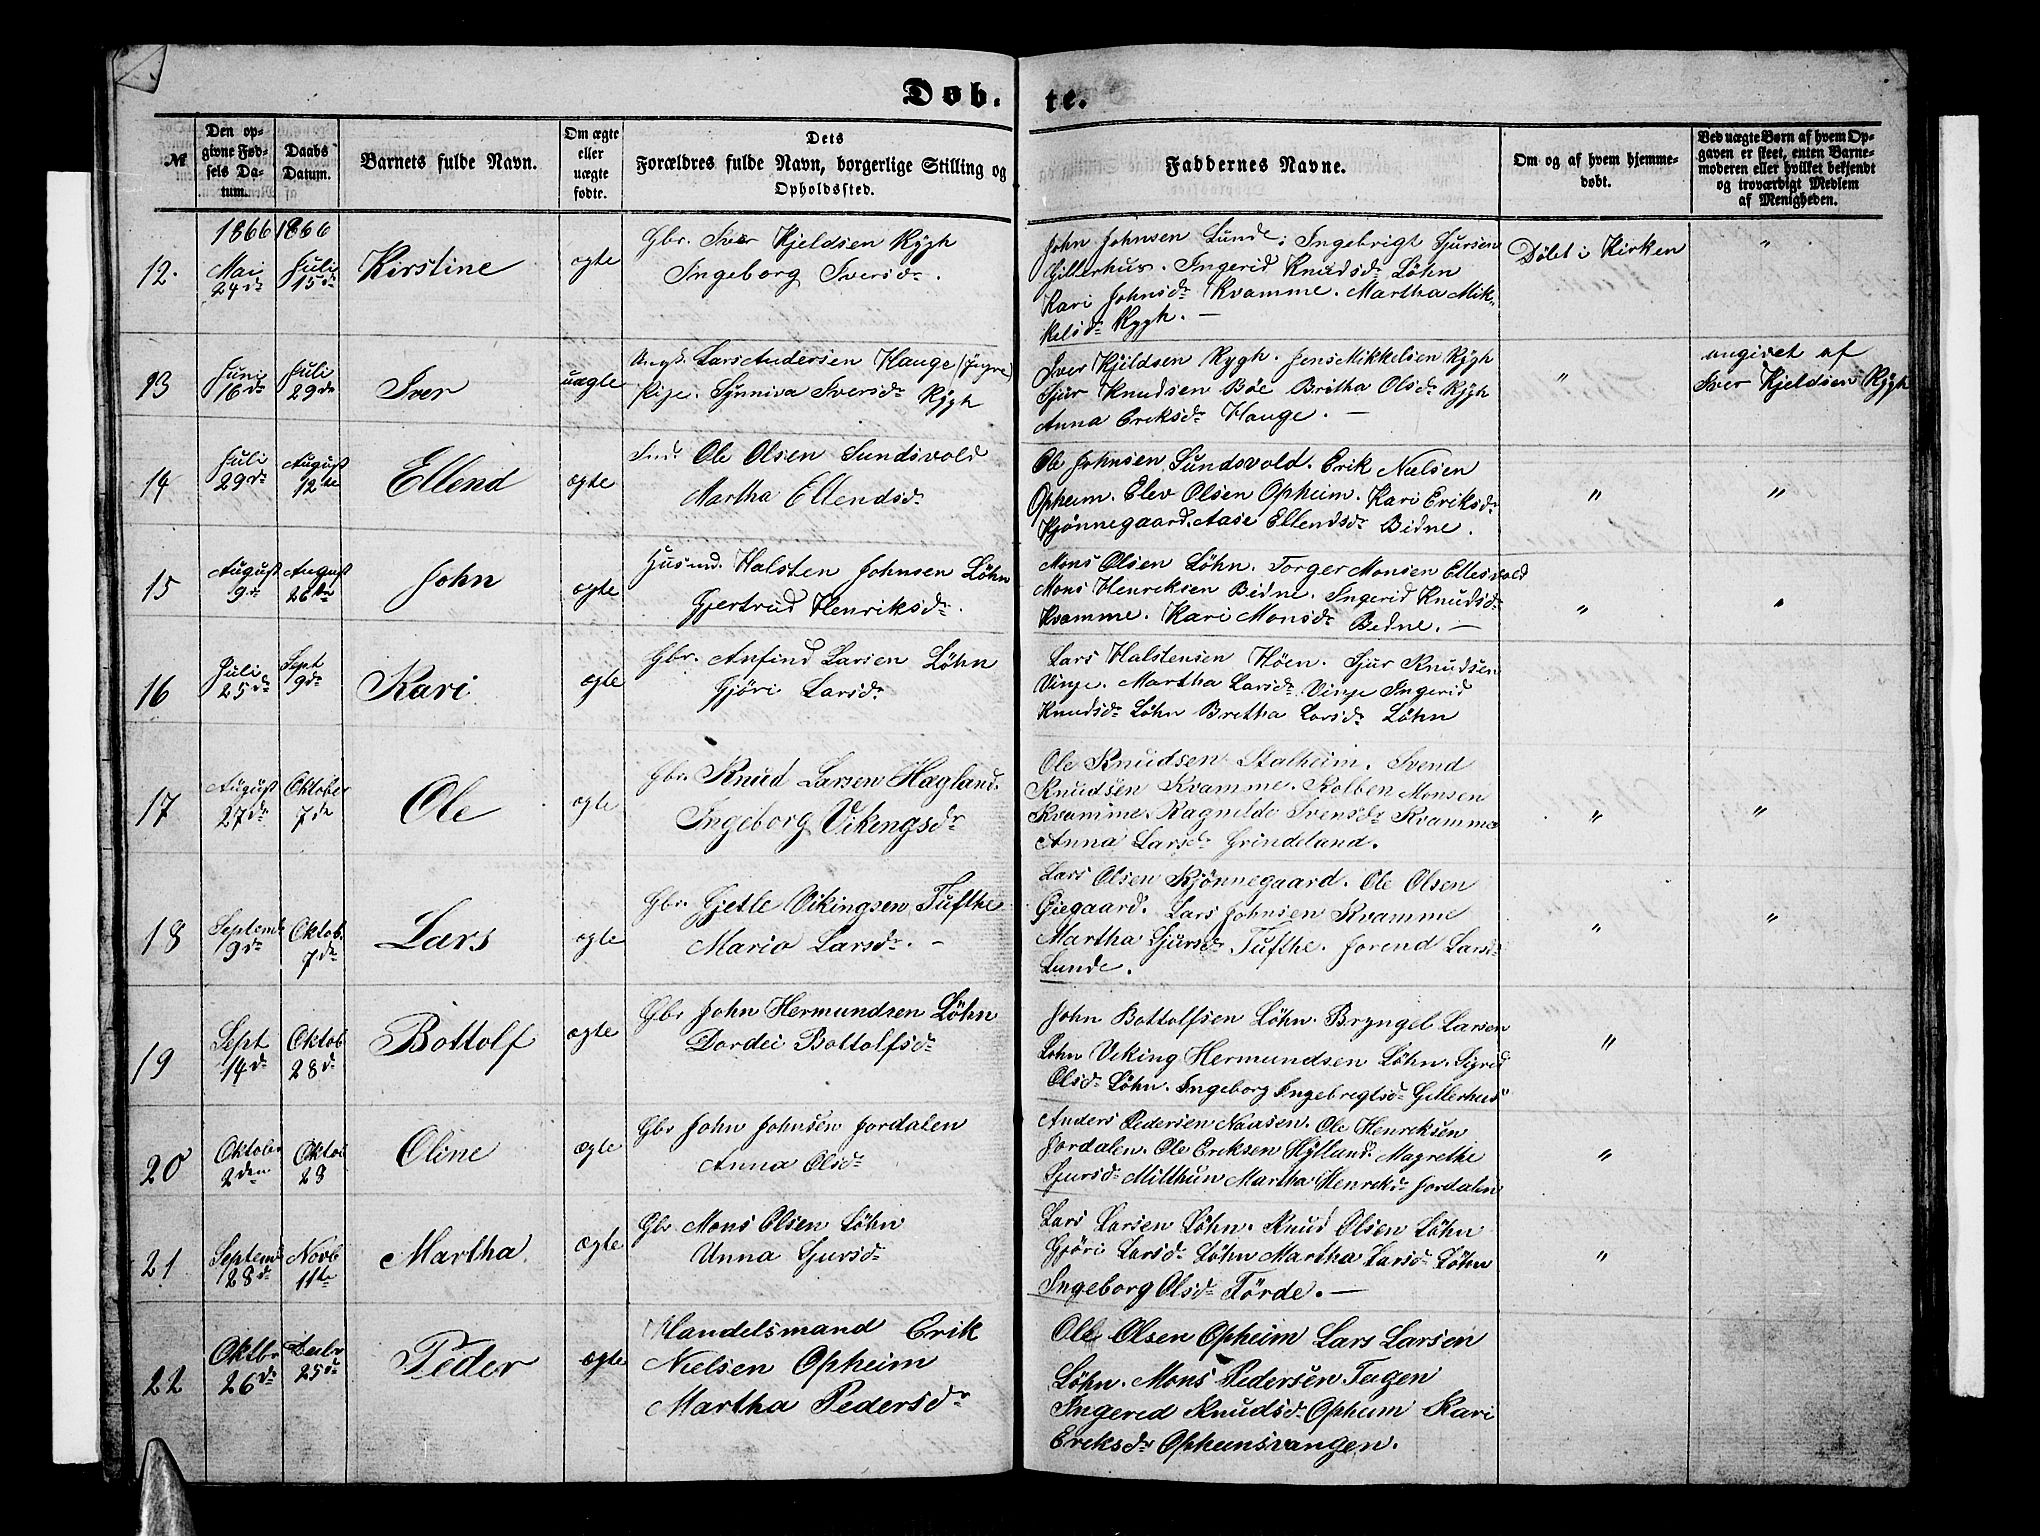 Døb-
te.
№
Den op-
givne Fød-
sels Da-
tum.
Daabs
Datum.
Barnets fulde Navn.
Om ægte
eller
uægte
fødte.
Dets
Forældres fulde Navn, borgerlige Stilling og
Opholdssted.
Faddernes Navne.
Om og af hvem hjemme-
døbt.
Ved uægte Børn af hvem Op-
gaven er skeet, enten Barne-
moderen eller hvilket bekjendt
og troværdigt Medlem
af Menigheden.
1866 1866
12. Mai 24de Juli 15de Kirstine ægte
Gbr. Iver Kjeldsen Rygh
Ingeborg Iversdr.
John Johnsen Lunde; Ingebrigt Sjursen
Gillerhus. Ingerid Knudsdr Løhn
Kari Johnsdr Kvamme. Martha Mik-
kelsdr Rygh. —
Døbt i Kirken
"
13 Juni 16de Juli 29de Iver uægte
Ungk. Lars Andersen Hauge
Pige. Synniva Iversdr Rygh
Iver Kjeldsen Rygh. Jens Mikkelsen Rygh
Sjur Knudsen Böe Britha Olsdr Rygh
Anna Eriksdr Hauge. —
"
angivet af
Iver Kjeldsen Rygh
14 Juli 29de August 12te Ellend ægte
Ole Olsen Sundsvold
Martha Ellendsdr
Ole Johnsen Sundsvold. Erik Nielsen
Opheim. Elev Olsen Opheim. Kari Eriksdr
Kjönnegaard. Aase Ellendsdr Bidne.
"
"
15 August 9de August 26de John ægte
Husmd. Halsten Johnsen Löhn
Gjertrud Henriksdr.
Mons Olsen Löhn. Torger Monsen Ellesvold
Mons Henriksen Bidne. Ingerid Knudsdr
Kvamme. Kari Monsdr Bidne. —
"
"
16 Juli 25de Sept 9de Kari ægte
Gbr. Anfind Larsen Löhn
Gjöri Larsdr
Lars Halstensen Höen. Sjur Knudsen
Vinje. Martha Larsdr Vinje Ingerid
Knudsdr Löhn Britha Larsdr Löhn
17 August 27de Oktober 7de Ole ægte
Gbr. Knud Larsen Hagland.
Ingeborg Vikingsdr
Ole Knudsen Stalheim. Svend
Knudsen Kvamme. Kolben Monsen
Kvamme. Ragnilde Svensdr Kvamme
Anna Larsdr Grindeland.
"
"
18 Septemb 9de Oktob. 7de Lars ægte
Gbr. Gjetle Vikingsen Tufthe
Maria Larsdr. —
Lars Olsen Kjönnegaard. Ole Olsen
Øiegaard. Lars Johnsen Kvamme
Martha Sjursdr Tufthe. Jorend Larsdr
Lunde.
"
"
19 Sept 14de Oktob 28de Bottolf ægte
Gbr John Hermundsen Löhn
Dordei Bottolfsdr
John Bottolfsen Löhn. Bryngel Larsen
Löhn Viking Hermundsen Löhn. Sigrid
Olsdr Löhn. Ingeborg Ingebregtsdr Gillerhus
"
20 Oktober 2den Oktob 28 Oline ægte
Gbr John Johnsen Jordalen
Anna Olsdr
Anders Pedersen Naasen. Ole Henriksen
Jordalen. Ole Eriksen Hylland. Magrethe
Sjursdr Milthun Martha Henriksdr Jordalen
"
21 Septemb 28de Novb 11te Martha ægte
Gbr Mons Olsen Löhn
Unna Sjursdr
Lars Larsen Löhn. Knud Olsen Löhn
Gjöri Larsdr Löhn Martha Larsdr Löhn
Ingeborg Olsdr Förde. —
"
22 Oktbr 26de Decbr 25de Peder ægte
Handelsmand Erik
Nielsen Opheim
Martha Pedersdr
Ole Olsen Opheim Lars Larsen
Löhn. Mons Pedersen Tagen
Ingerid Knudsdr Opheim Kari
Eriksdr Opheimsvangen.